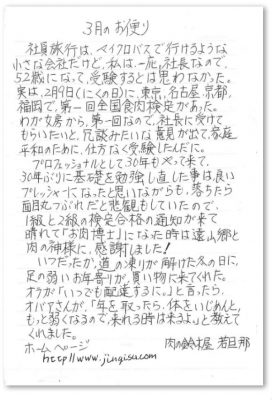 3月のお便り
社員旅行は、マイクロバスで行けるような
小さな会社だけど、私は一応、社長なので、
52歳になって、受験するとは思わなかった。
実は、2月9日(にくの日)に、東京、名古屋、京都、
福岡で、第一回全国食肉検定があった。
わが女房から、第一回なので、社長に受けて
もらいたいと、冗談みたいな意見が出て、家庭
平和のために、仕方なく受験したんだに。
プロフェッショナルとして30年もやって来て、
30年ぶりに基礎を勉強し直した事は、良い
プレッシャーになったと思いながらも、落ちたら
面目丸つぶれだと悲観もしていたので、
1級と2級の検定合格の通知が来て
晴れて「お肉博士」になった時は遠山郷と
肉の神様に、感謝しました!
いつだったか、道の凍りが解けた冬の日に、
足の弱いお年寄りが、買い物に来てくれた。
オラが「いつでも配達するに。」と言ったら、
オバアさんが、「年を取ったら、体をいじめんと、
もっと弱くなるので、来れる時は来るよ。」と教えて
くれました。
ホームページ 肉の鈴木屋 若旦那
http://www.jingisu.com